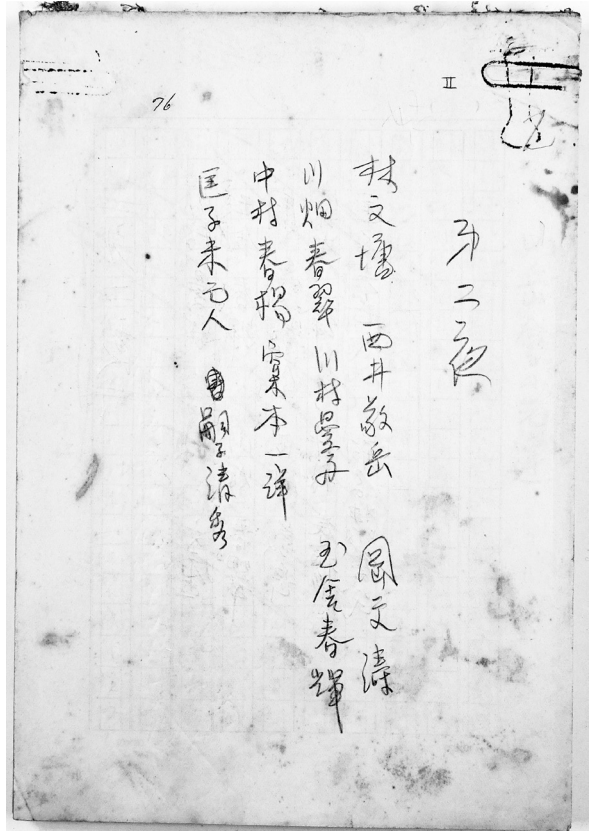 II
76
第二夜
林文塘 西井敬岳 岡文濤
川畑春翠 川村曼舟 玉舎春輝
中村春楊 案本一洋
匡子未亡人 嗣子清秀